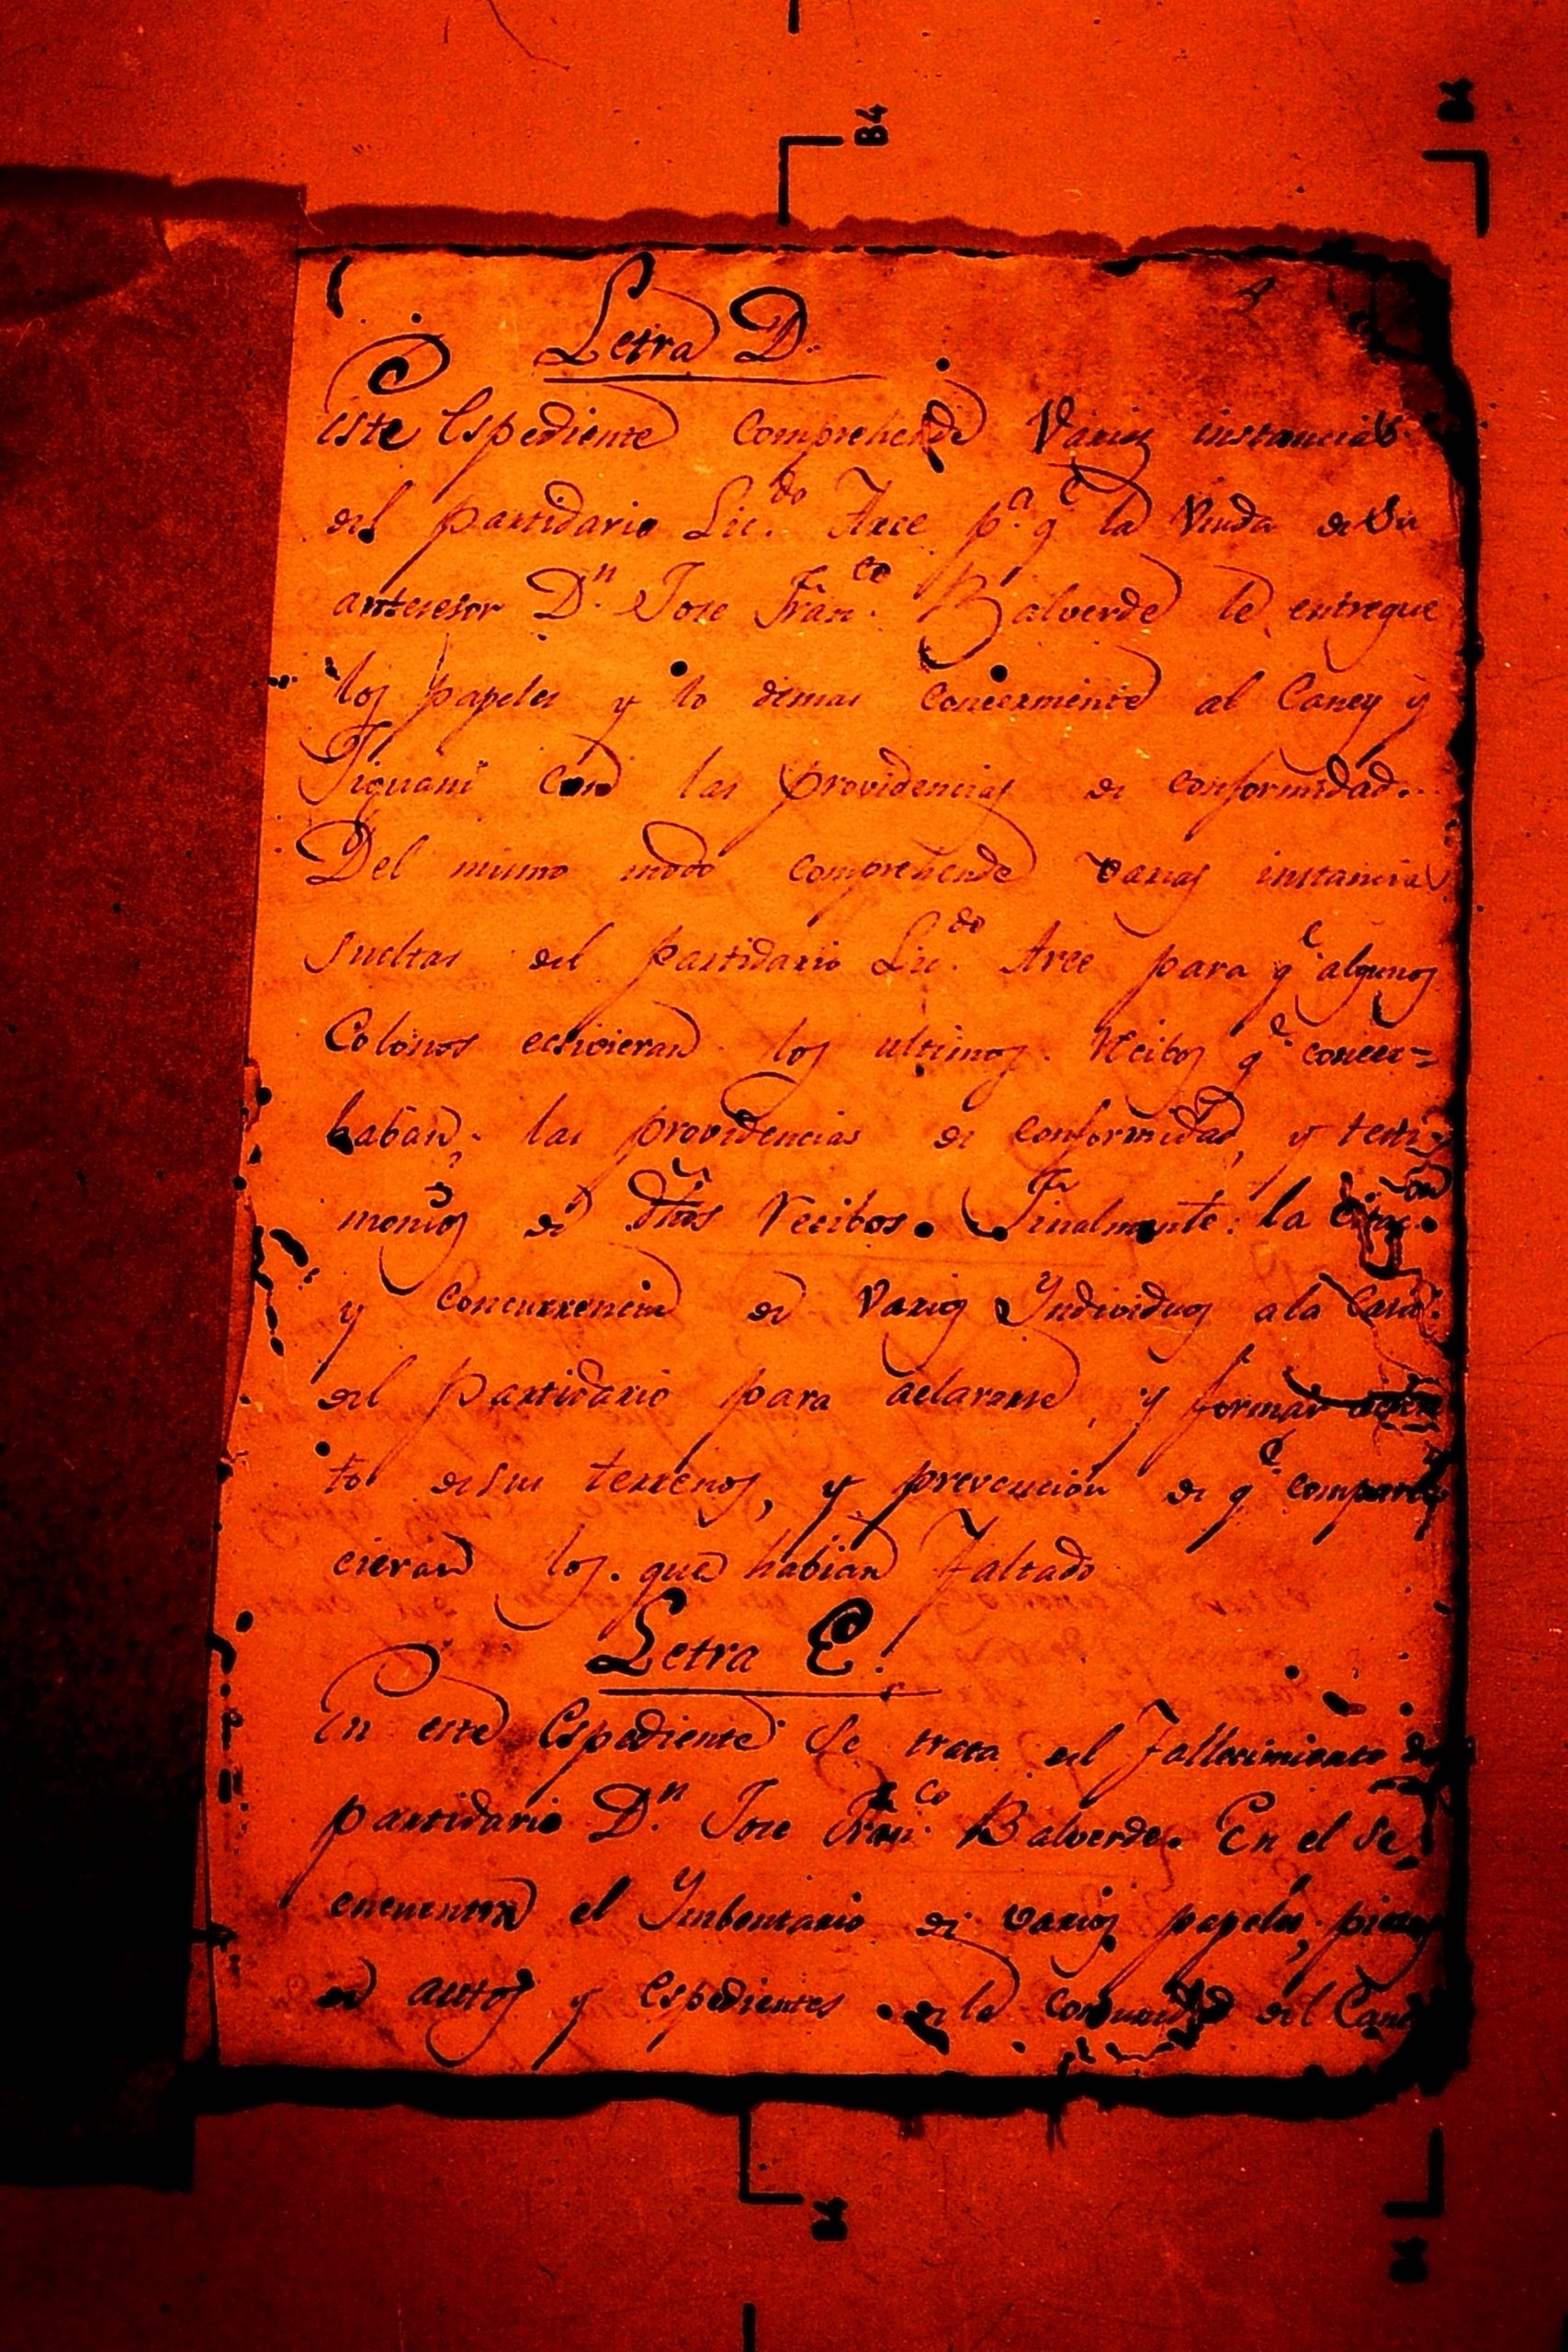 4
Letra D.
Este Espediente Comprehende Varias instancias
del partidario Lic.do Arce p.a q.e la Viuda de Su
antecesor D.n Jose Fran.co Balverde le entregue
los papeles y lo demas Concerniente al Caney y
Jiguani con las providencias de conformidad.
Del mismo modo comprehende varias instancias
sueltas del partidario Lic.do Arce para q.e algunos
Colonos ecsivieran los ultimos Recibos q.e concer=
baban; las providencias de conformidad, y testi
monios de dhos Recibos. Finalmente: la
y Concurrencia de Varios Yndividuos a la Casa
del partidario para aclararse, y formar
to de sus terrenos, y prevencion de q.e compare
cieran los que habian Faltado
Letra E.
En este Espediente Se trata del Fallecimiento de
partidario D.n Jose Fran.co Balverde. En el Se
encuentra el Ynbentario de varios papeles, piezas
de autos y Espedientes de la comunidad del Cane
B4
B4
B4
B4